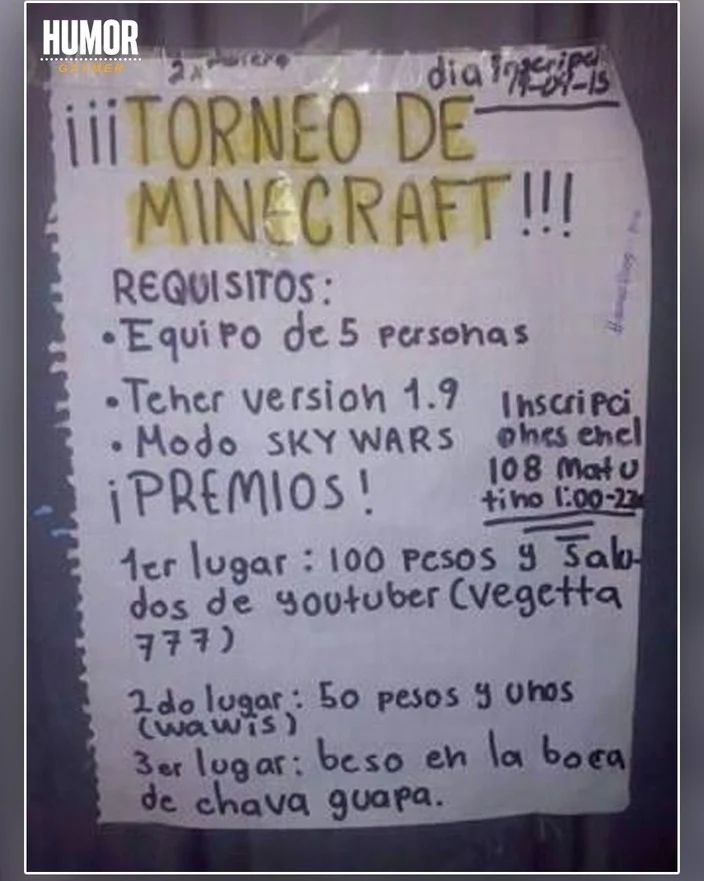 HUMOR
GAMER
dia Inscripci
¡¡¡TORNEO DE
MINECRAFT!!!
REQUISITOS:
• Equipo de 5 personas
• Tener version 1.9
• Modo SKY WARS
Inscripci
ones en el
108 Matu
tino 1:00-2
¡PREMIOS!
1er lugar: 100 pesos y Salu-
dos de youtuber (vegetta
777)
2do lugar: 50 pesos y unos
(wawis)
3er lugar: beso en la boca
de chava guapa.